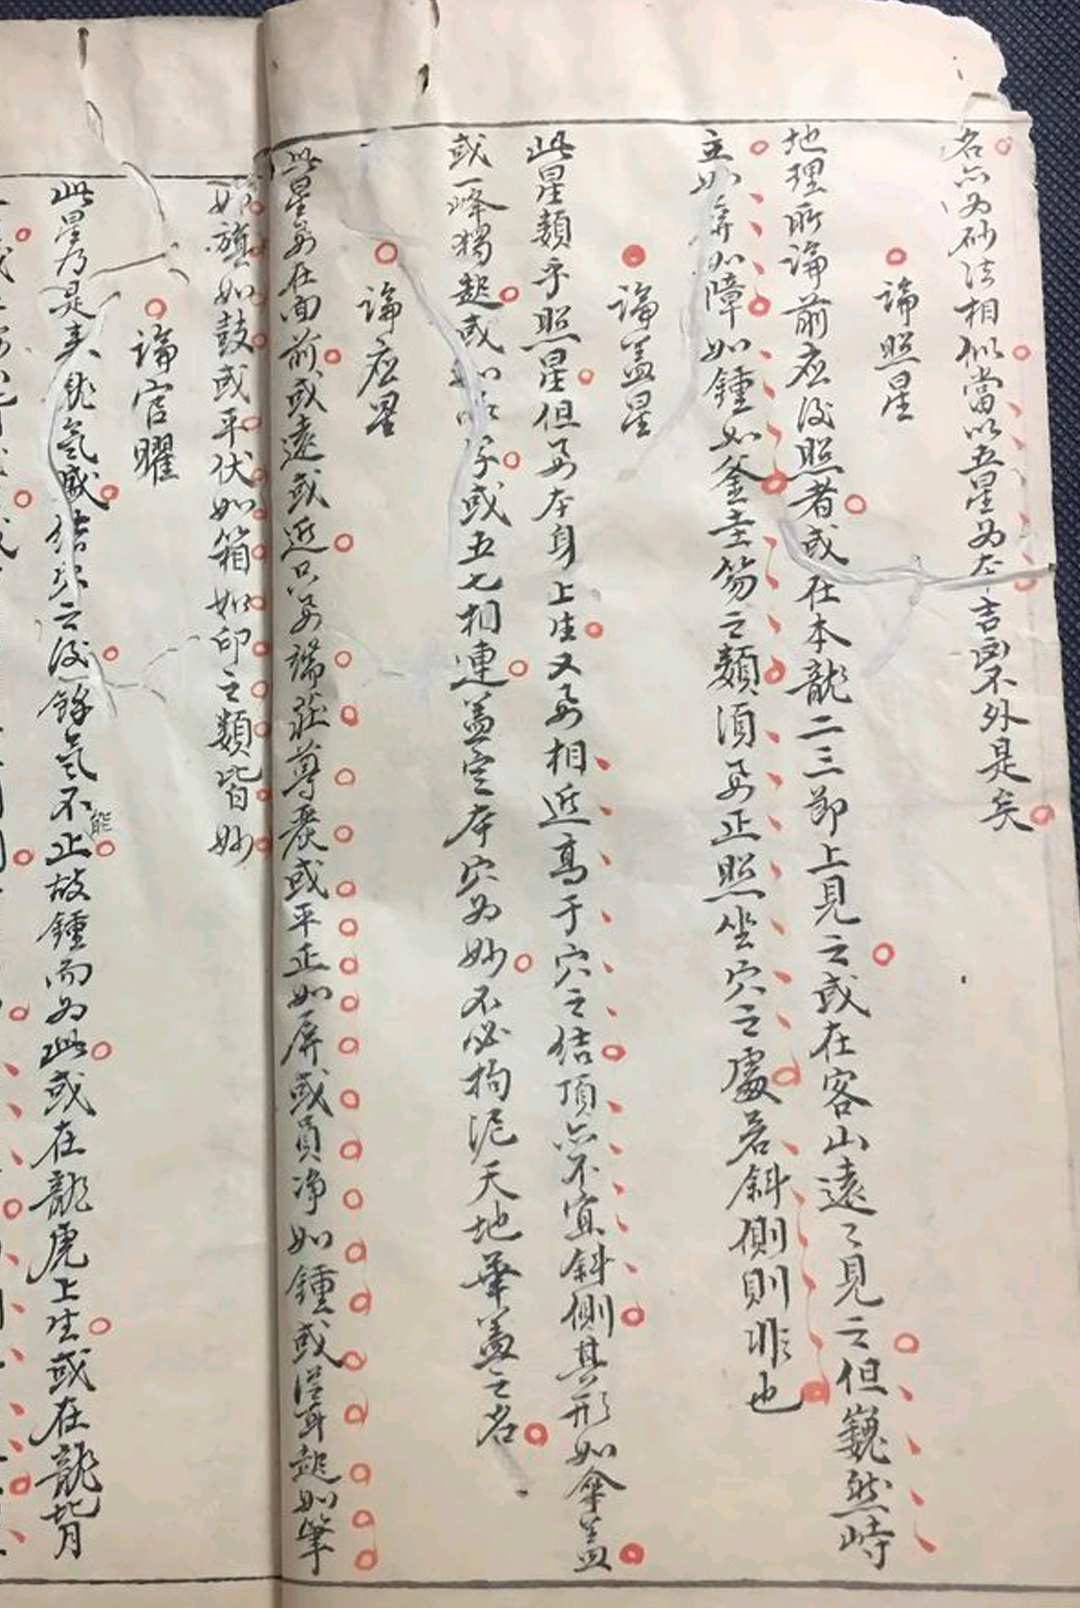 名亦为砂法相似當以五星为本吉凶不外是矣
論照星
地理所論前应後照者或在本龍二三節上見之或在客山遠〻見之但巍然峙
立如屏如障如鍾如釜圭笏之類須要正照坐穴之處若斜側則非也
論盖星
此星類乎照星但要本身上生又要相近高于穴之结頂亦不宜斜側其形如傘盖
或一峰獨起或如字或五七相連盖定本穴为妙不必拘泥天地華盖之名
論应星
此星要在面前或遠或近只要端莊尊嚴或平正如屏或員净如鍾或聳起如筆
如旗如鼓或平伏如箱如印之類皆妙
論官曜
此星乃是真龍氣盛结穴之後餘氣不能止故鍾而为此或在龍虎上生或在龍背